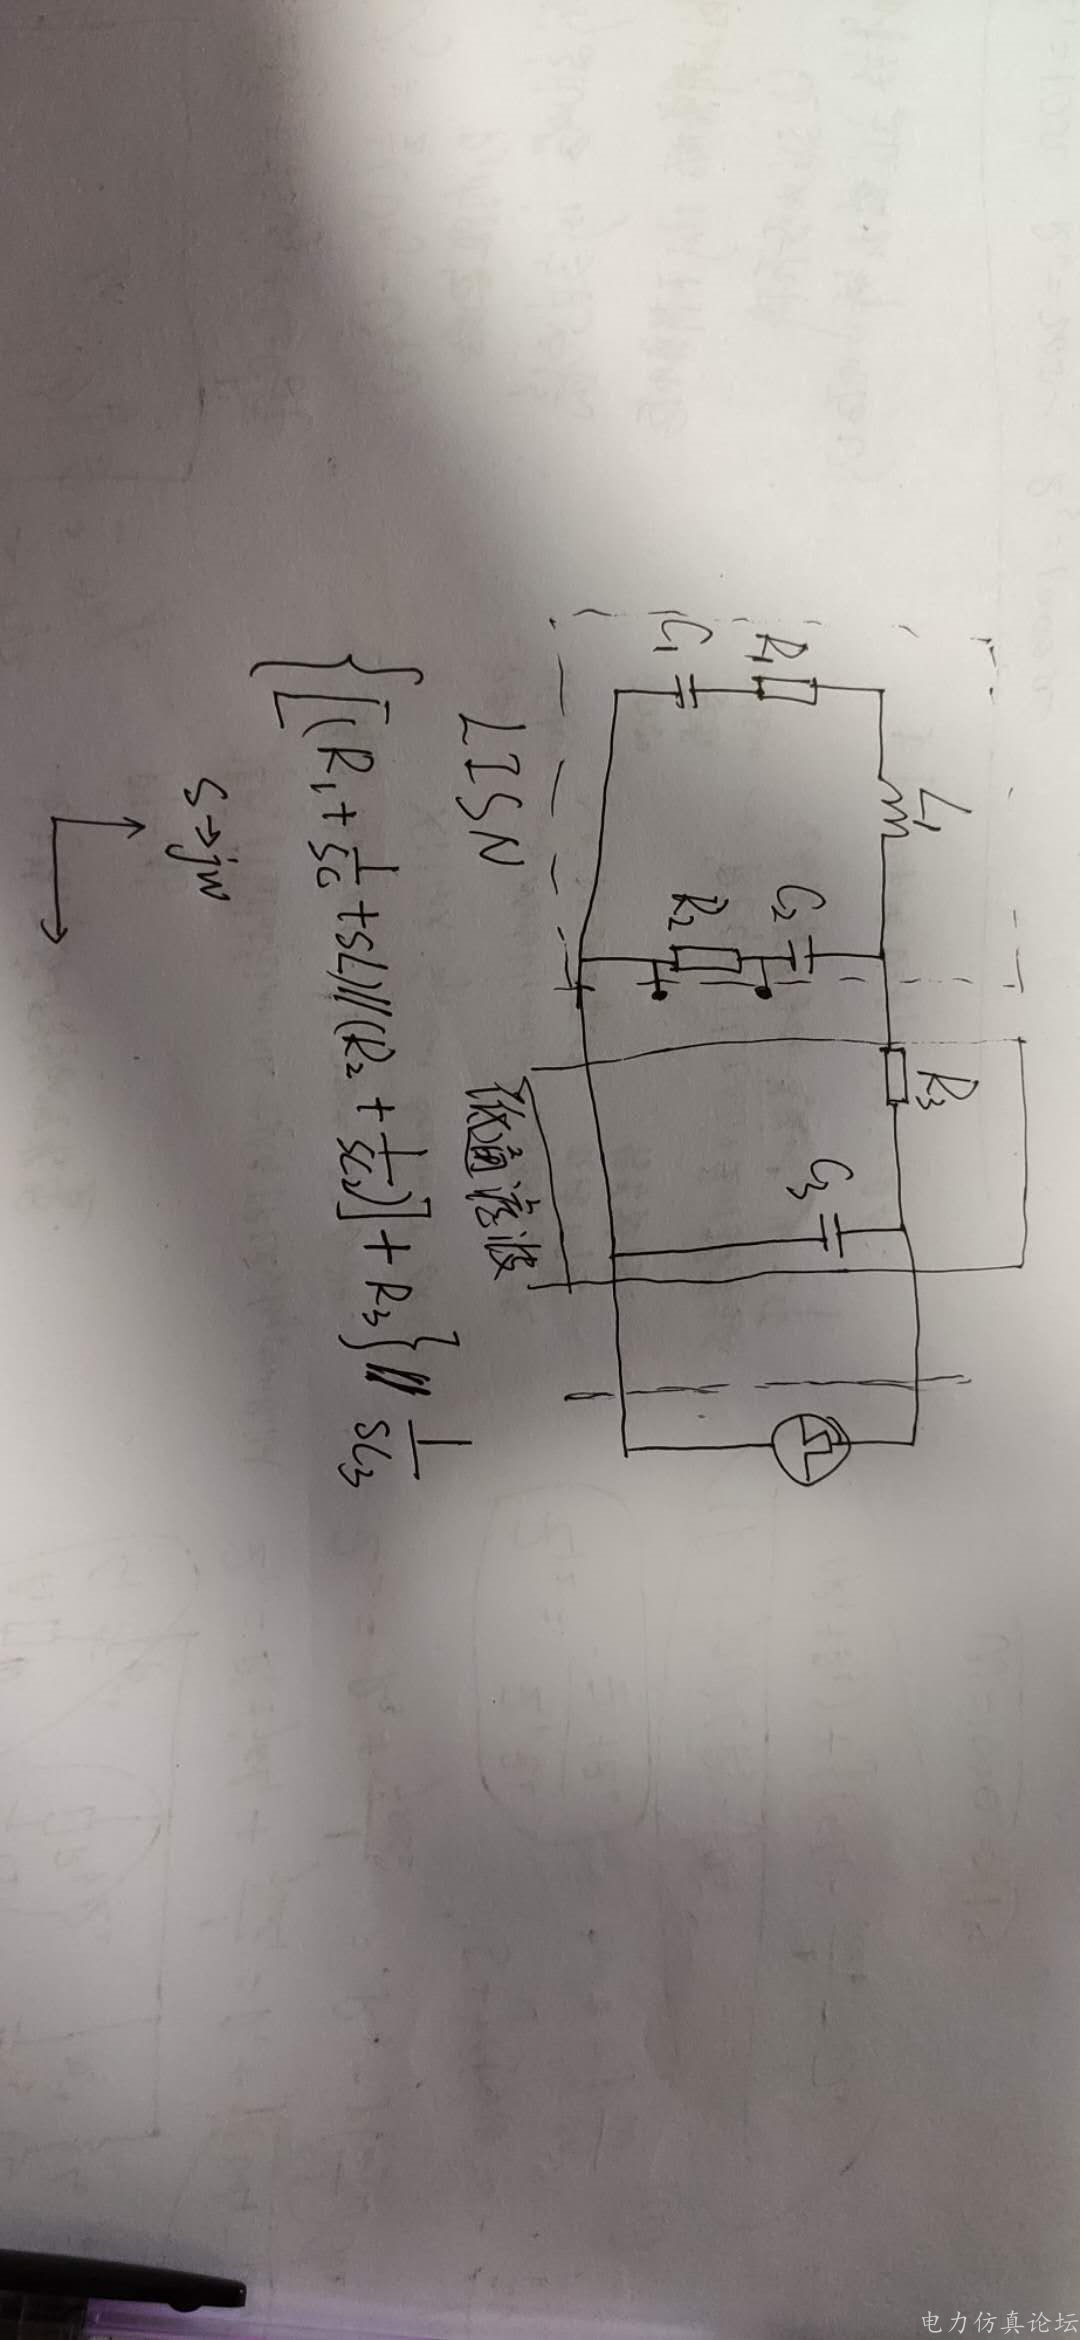 L₁
R₁
C₁
C₂
R₂
R₃
C₃
LISN
低通滤波
{[(R₁+1/SC₁+SL₁)//(R₂+1/SC₂)]+R₃}//1/SC₃
S→jw
电力仿真论坛